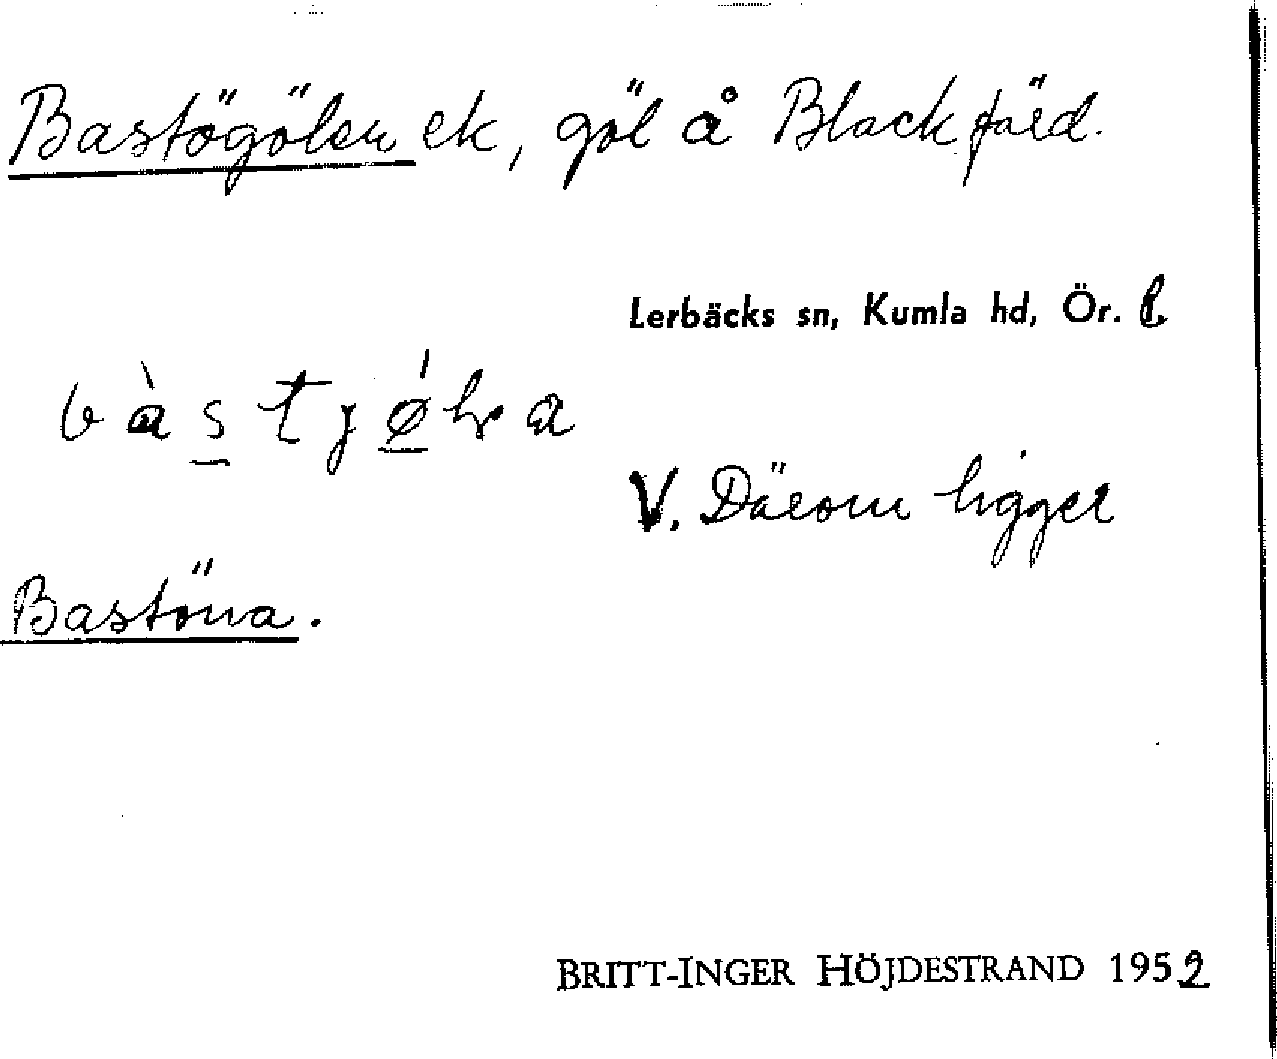 Bastögölen ek, göl å Blackfärd.
Lerbäcks sn, Kumla hd, Ör. l
V. Därom ligger
Bastöna.
BRITT-INGER HÖJDESTRAND 1952